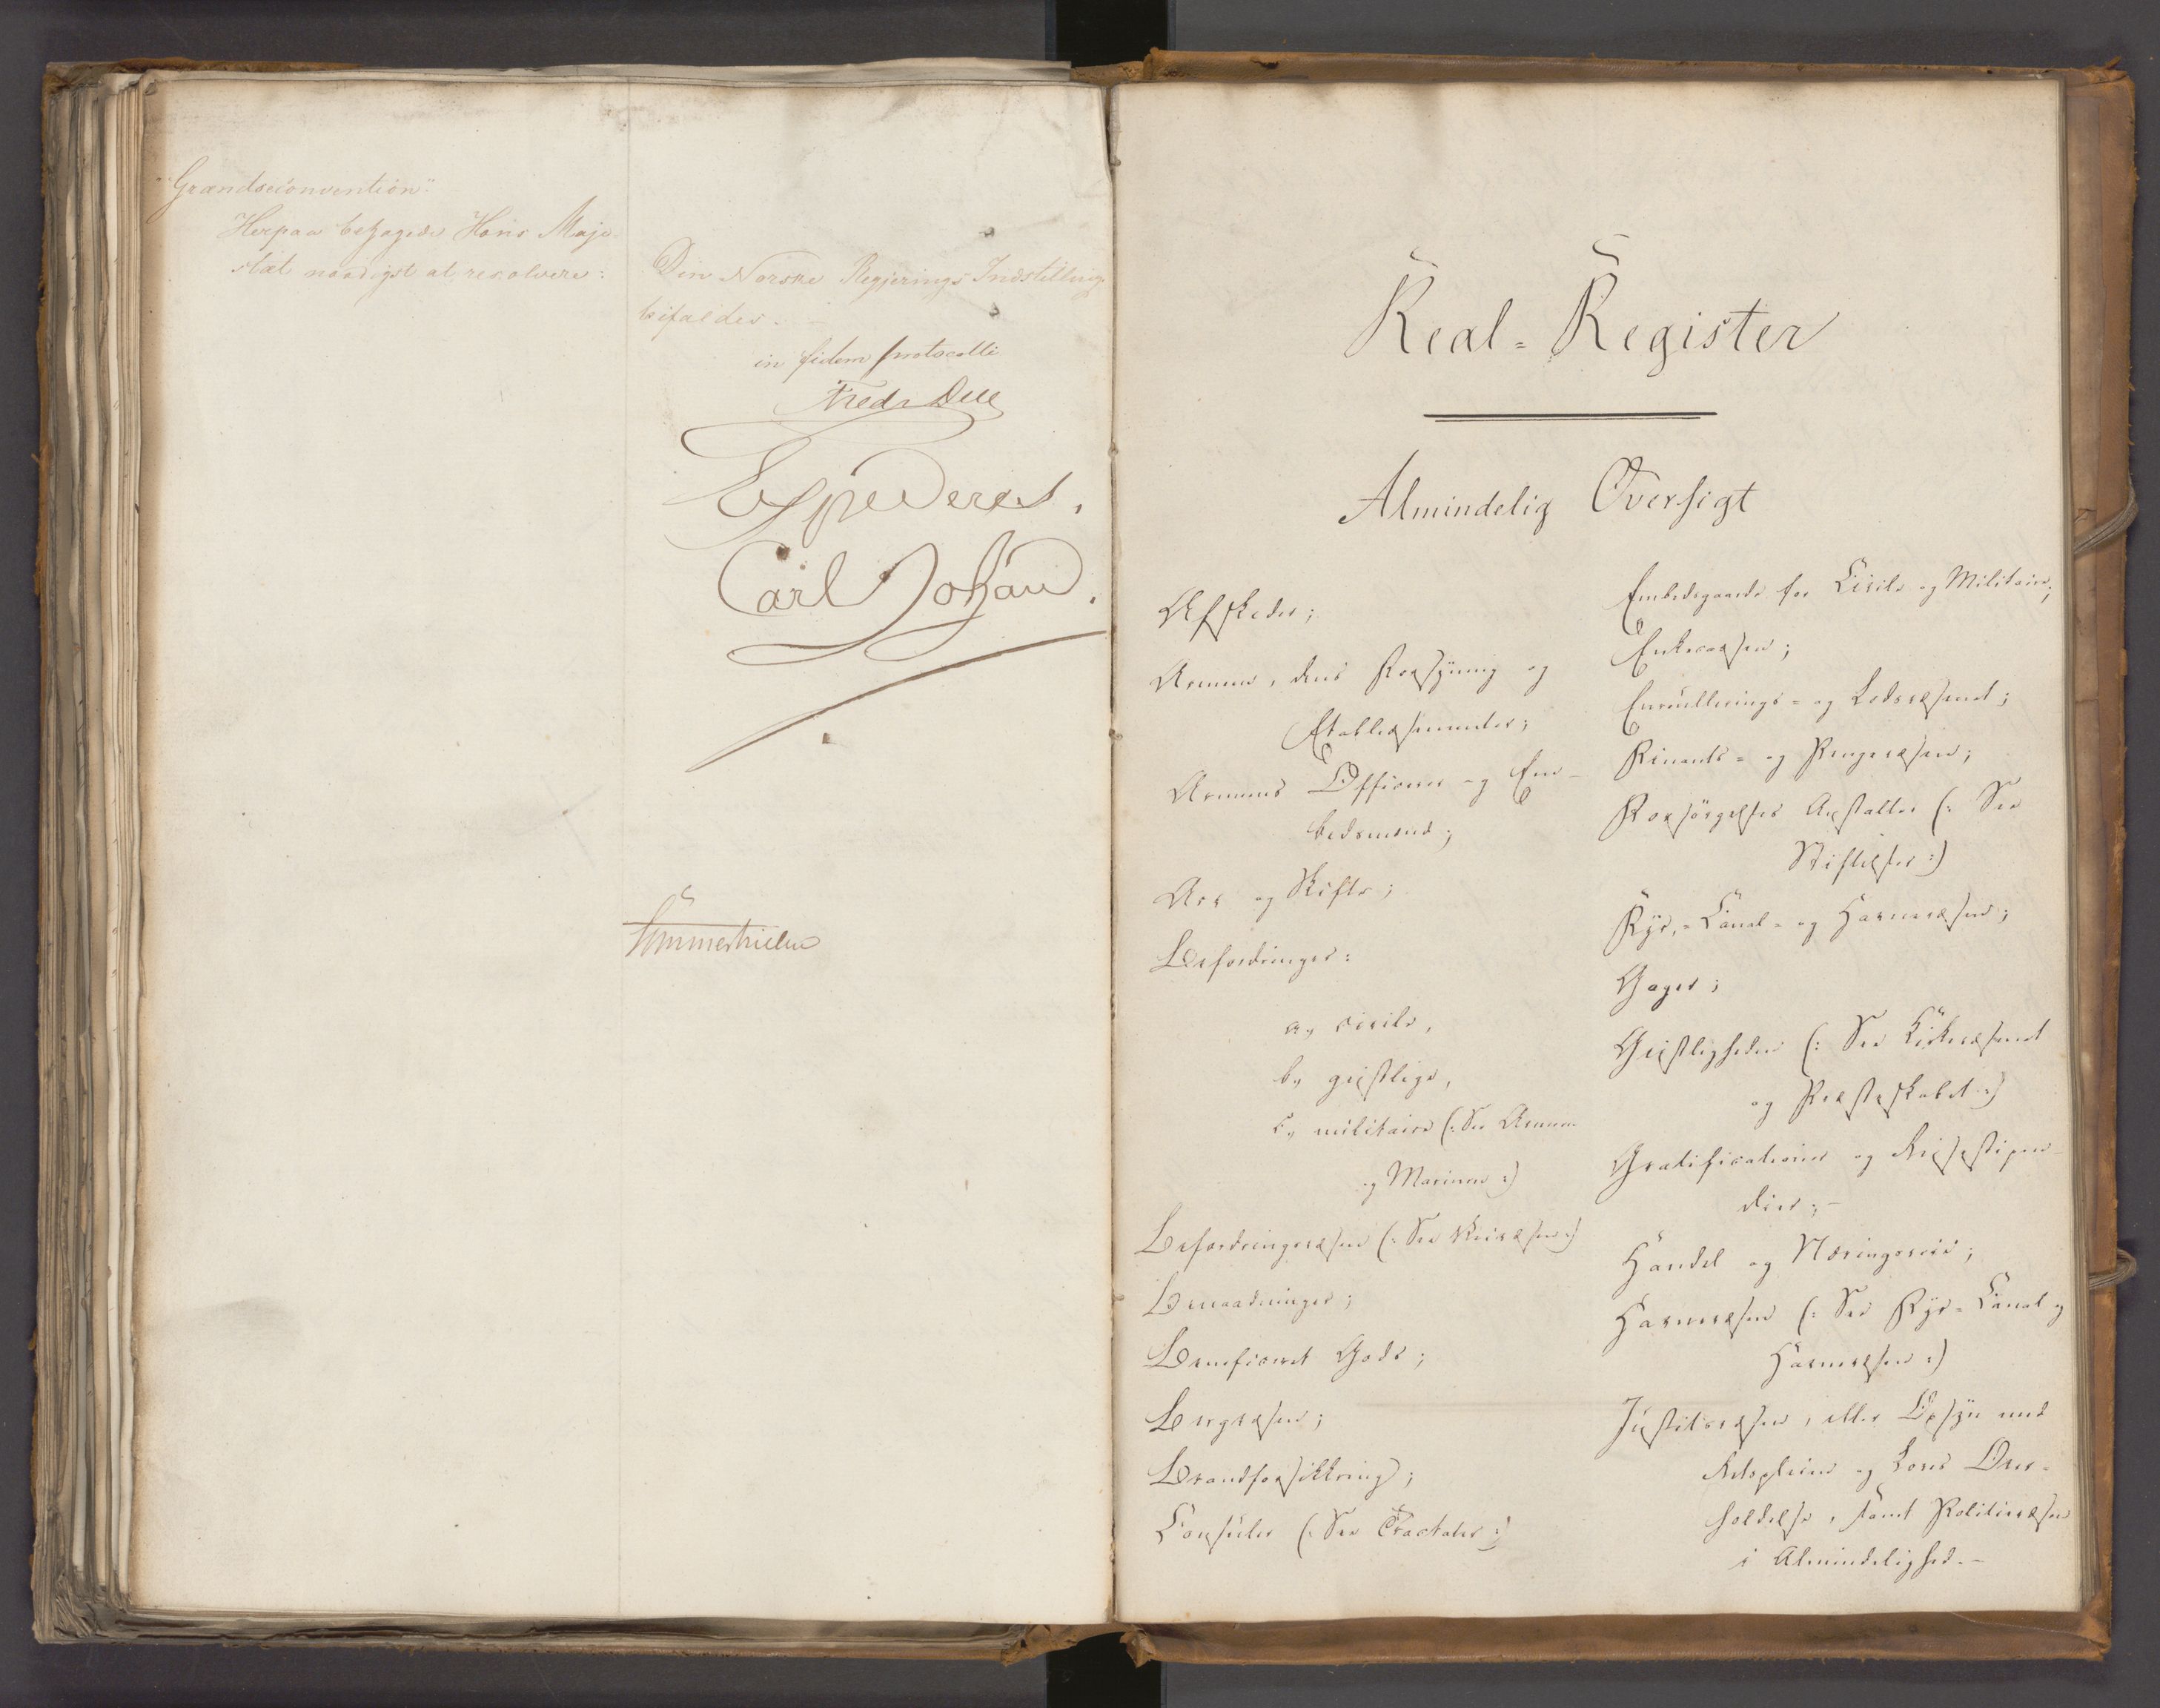 Grændseconvention".
Herpaa behagede Hans Maje-
stæt naadigst at resolvere:
Den Norske Regjerings Indstilling
bifaldes. -
in fidem protocolli
Fredr Due
Expederes.
Carl Johan.
Real-Register
Almindelig Oversigt
Afskeder;
Armeen, dens Forsyning og
Etablissementer;
Armeens Officerer og Em-
bedsmænd;
Arv og Skifte;
Befordringer:
a, civile,
b, geistlige,
c, militaire (: See Armeen
og Marinen :)
Befordringsvæsen (: See Veivæsen :)
Benaadninger;
Beneficeret Gods;
Bergvæsen;
Brandforsikkring;
Consuler (: See Tractater :)
Embedsgaarde for Civile og Militaire;
Enkecassen;
Enroullerings- og Lodsvæsenet;
Finants- og Pengevæsen;
Forsörgelses Anstalter (: See
Stiftelser :)
Fyr,- Canal- og Havnevæsen;
Gager;
Geistligheden (: See Kirkevæsenet
og Præsteskabet :)
Gratificationer og Reisestipen-
dier; -
Handel og Næringsveie;
Havnevæsen (: See Fyr- Canal og
Havnevæsen :)
Justitsvæsen, eller Opsyn med
Retspleien og Lovens Over-
holdelse, samt Politievæsen
i Almindelighed. -